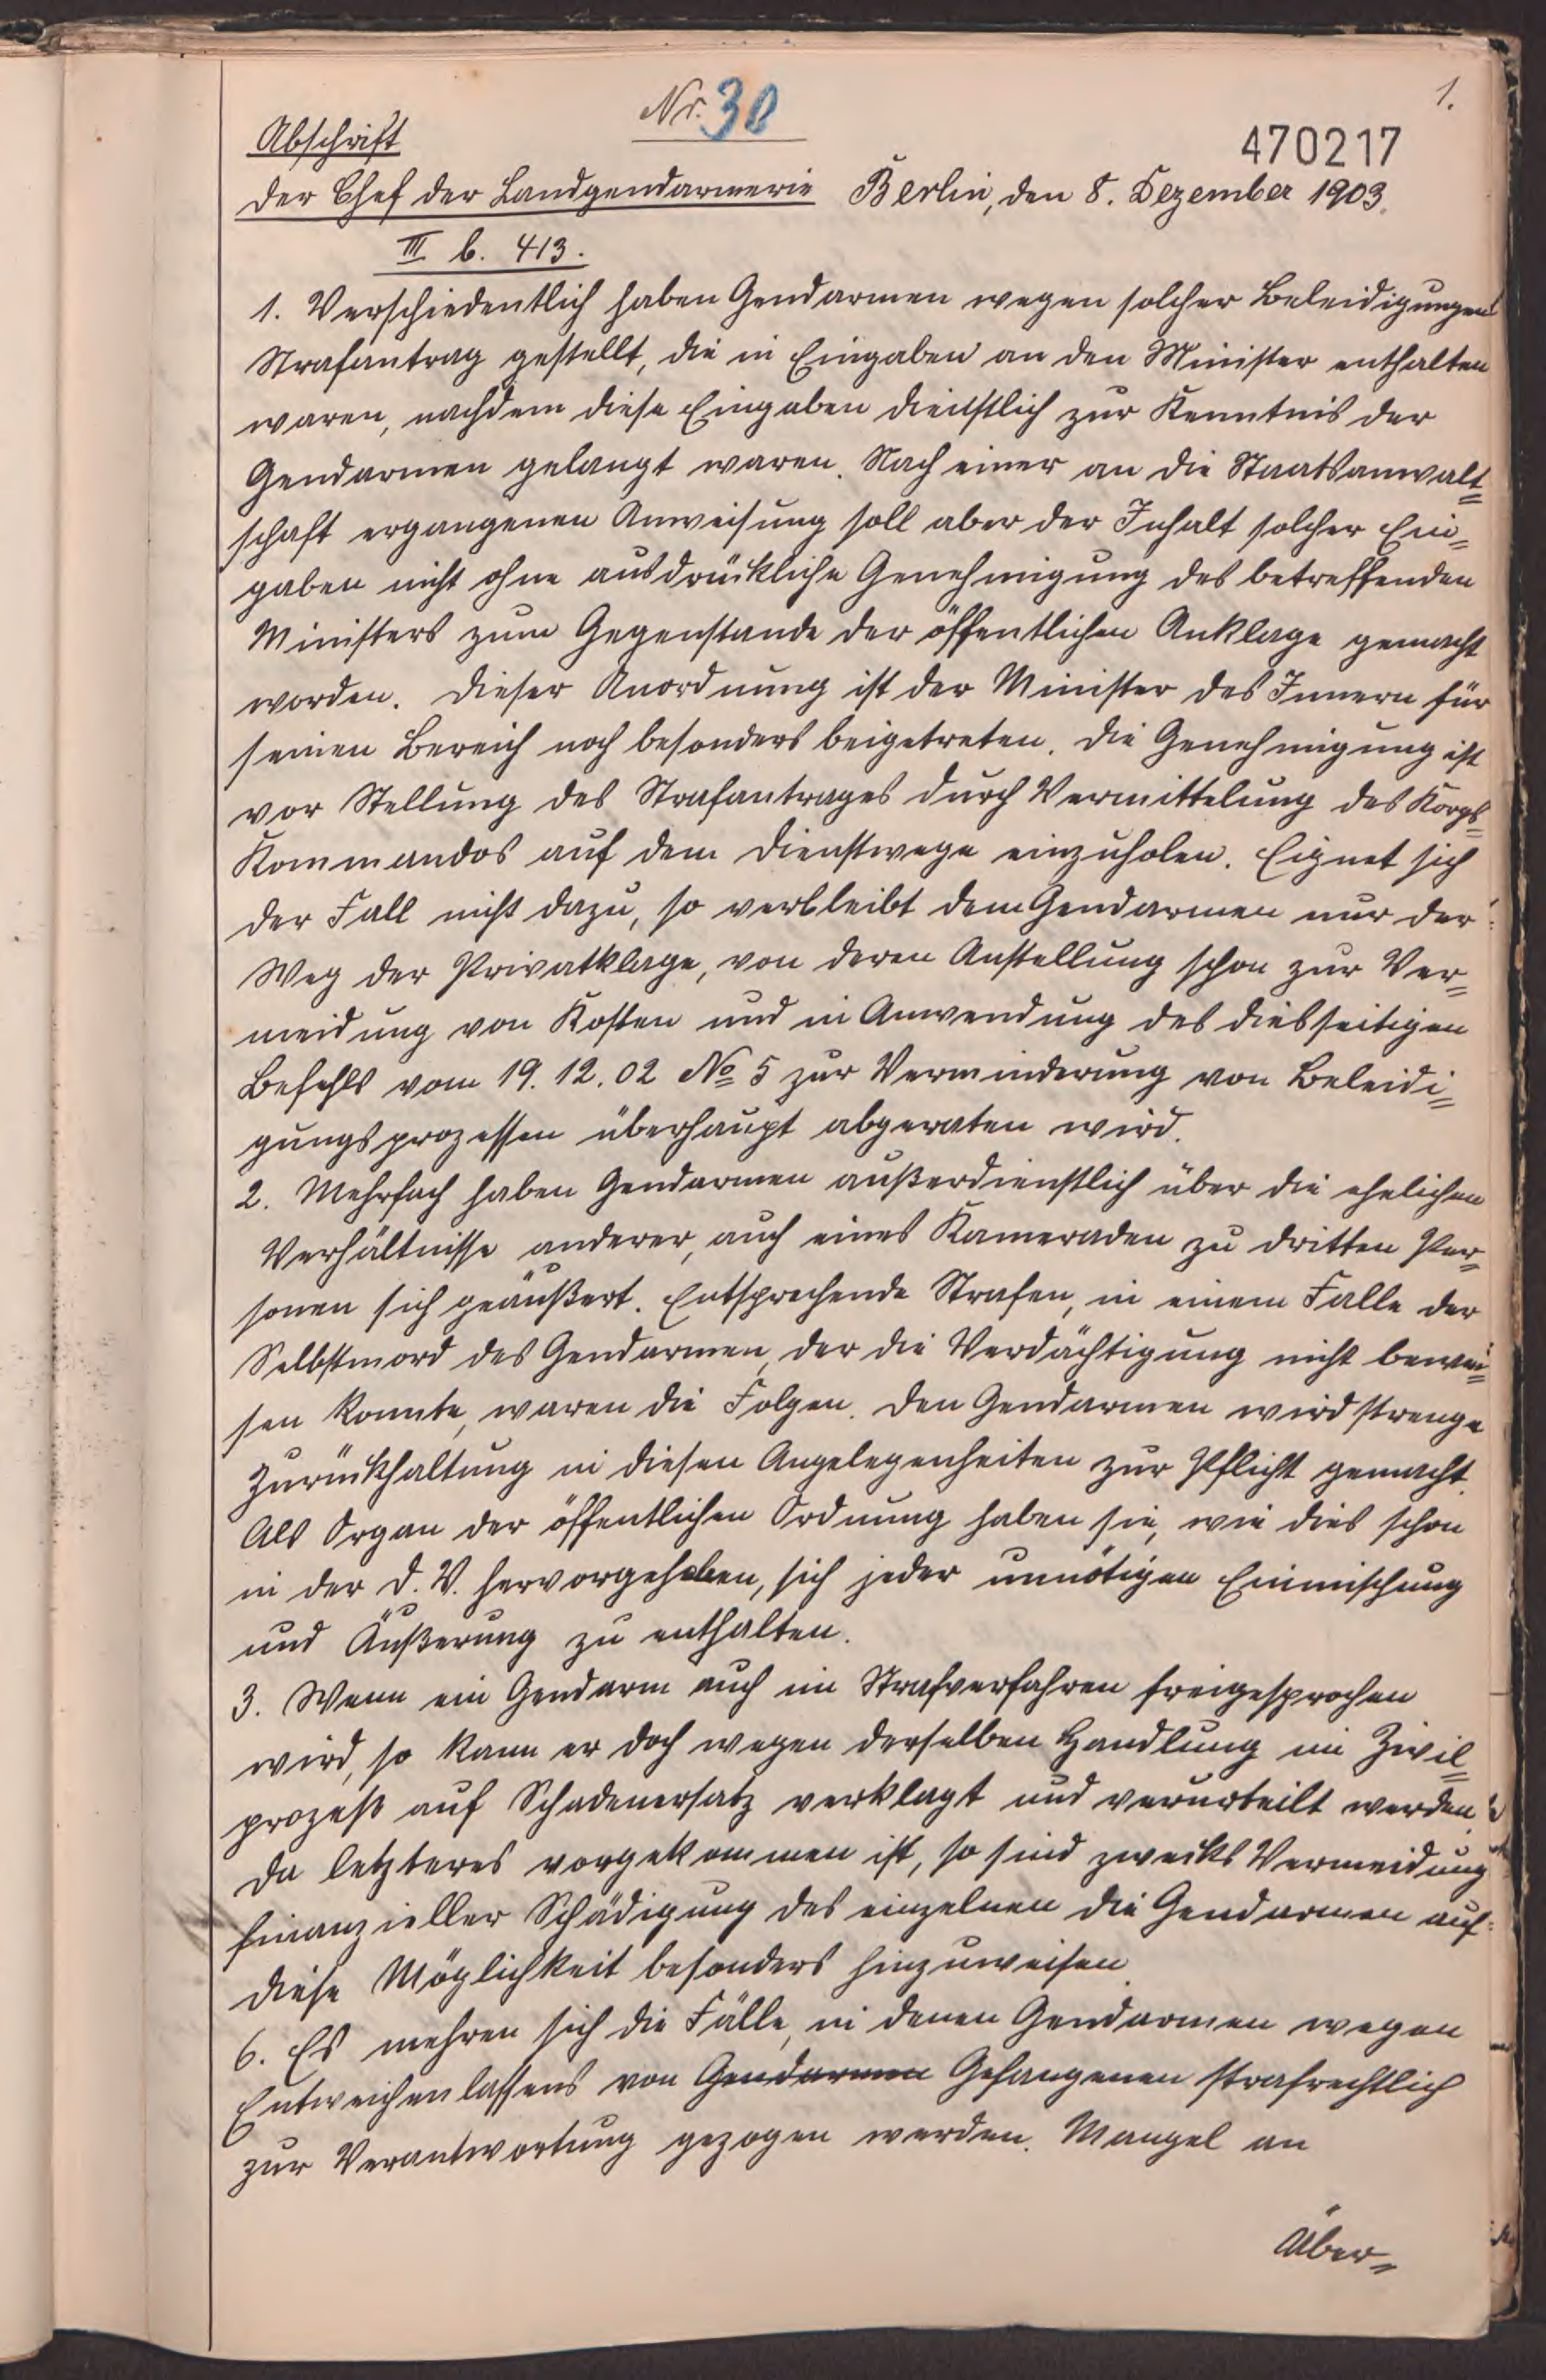 1.
Nr. 30
Abschrift
470217
Der Chef der Landgendarmerie Berlin, den 8. Dezember 1903.
III b. 413.
1. Verschiedentlich haben Gendarmen wegen solcher Beleidigungen
Strafantrag gestellt, die in Eingaben an den Minister enthalten
waren, nachdem diese Eingaben dienstlich zur Kenntnis der
Gendarmen gelangt waren. Nach einer an die Staatsanwalt=
schaft ergangenen Anweisung soll aber der Inhalt solcher Ein=
gaben nicht ohne ausdrückliche Genehmigung des betreffenden
Ministers zum Gegenstande der öffentlichen Anklage gemacht
worden. Dieser Anordnung ist der Minister des Innern für
seinen Bereich noch besonders beigetreten. Die Genehmigung ist
vor Stellung des Strafantrages durch Vermittelung des Korps=
Kommandos auf dem Dienstwege einzuholen. Eignet sich
der Fall nicht dazu, so verbleibt dem Gendarmen nur der
Weg der Privatklage, von deren Anstellung schon zur Ver=
meidung von Kosten und in Anwendung des diesseitigen
Befehls vom 19. 12. 02 No 5 zur Verminderung von Beleidi=
gungsprozessen überhaupt abgeraten wird.
2. Mehrfach haben Gendarmen außerdienstlich über die ehelichen
Verhältnisse anderer, auch eines Kameraden zu dritten Per=
sonen sich geäußert. Entsprechende Strafen, in einem Falle der
Selbstmord des Gendarmen, der die Verdächtigung nicht bewei=
sen konnte, waren die Folgen. Den Gendarmen wird strenge
Zurückhaltung in diesen Angelegenheiten zur Pflicht gemacht.
Als Organ der öffentlichen Ordnung haben sie, wie dies schon
in der D. V. hervorgehoben, sich jeder unnötigen Einmischung
und Äußerung zu enthalten.
3. Wenn ein Gendarm auch im Strafverfahren freigesprochen
wird, so kann er doch wegen derselben Handlung im Zivil=
prozeß auf Schadenersatz verklagt und verurteilt werden.
Da letzteres vorgekommen ist, so sind zwecks Vermeidung
finanzieller Schädigung des einzelnen die Gendarmen auf
diese Möglichkeit besonders hinzuweisen.
6. Es mehren sich die Fälle, in denen Gendarmen wegen
Entweichenlassens von Gendarmen Gefangenen strafrechtlich
zur Verantwortung gezogen werden. Mangel an
Über=